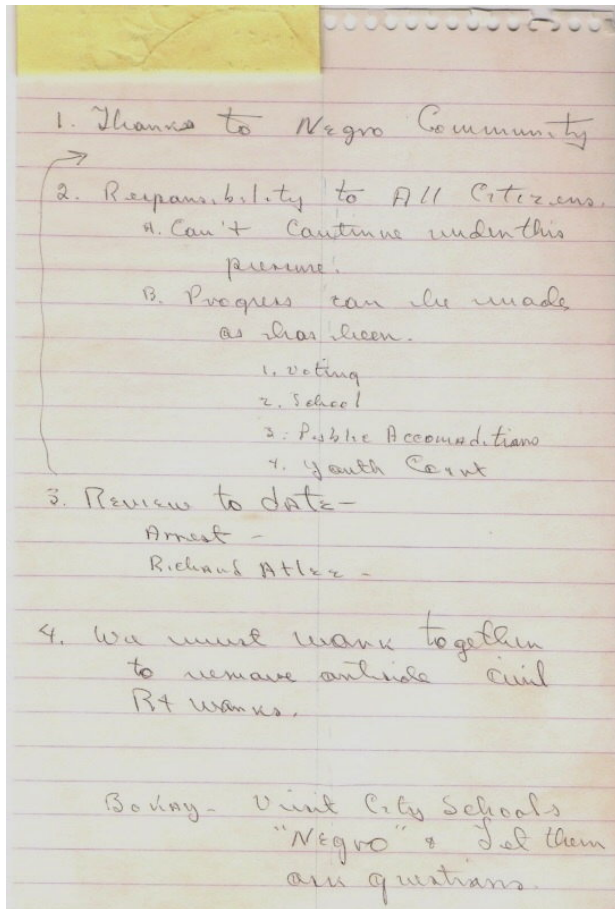 1. Thanks to Negro Community
2. Responsibility to All Citizens.
A. Can't Continue under this
pressure.
B. Progress can be made
as has been.
1. Voting
2. School
3. Public Accomoditions
4. Youth Court
3. Review to date-
Arrest -
Richard Atlee -
4. We must work together
to remove outside civil
Rt works.
Bokay- Visit City Schools
"Negro" & Let them
ask questions.